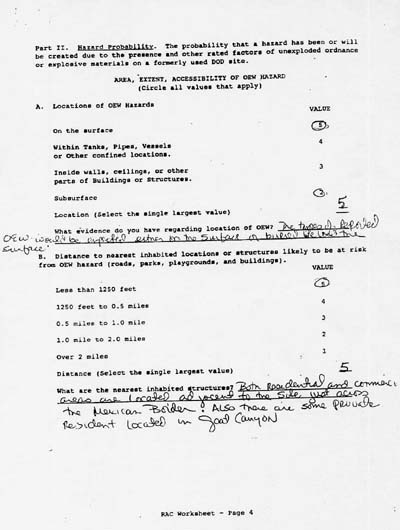 Part II. Hazard Probability. The probability that a hazard has been or will
be created due to the presence and other rated factors of unexploded ordnance
or explosive materials on a formerly used DOD site.
AREA, EXTENT, ACCESSIBILITY OF OEW HAZARD
(Circle all values that apply)
A. Locations of OEW Hazards
VALUE
On the surface 5
Within Tanks, Pipes, Vessels 4
or Other confined locations.
Inside walls, ceilings, or other 3
parts of Buildings or Structures.
Subsurface 2
Location (Select the single largest value) 5
What evidence do you have regarding location of OEW? The types of reported
OEW would be expected either on the surface or buried below the
surface.
B. Distance to nearest inhabited locations or structures likely to be at risk
from OEW hazard (roads, parks, playgrounds, and buildings).
VALUE
Less than 1250 feet 5
1250 feet to 0.5 miles 4
0.5 miles to 1.0 mile 3
1.0 mile to 2.0 miles 2
Over 2 miles 1
Distance (Select the single largest value) 5
What are the nearest inhabited structures? Both Residential and commerci
areas are located adjacent to the site just across
the Mexican Border. Also there are some private
Resident located in Goat Canyon
RAC Worksheet - Page 4